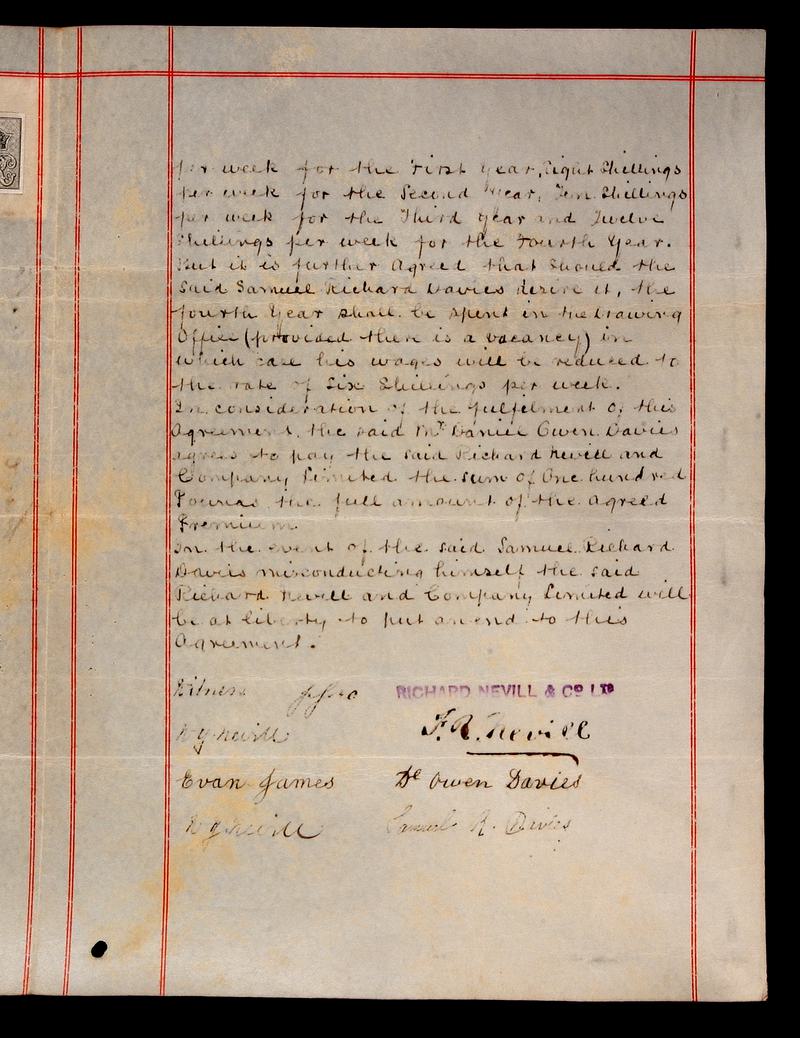 per week for the First Year, Eight Shillings
per week for the Second Year, Ten Shillings
per week for the Third Year and Twelve
Shillings per week for the Fourth Year.
But it is further Agreed that Should the
Said Samuel Richard Davies desire it, the
fourth Year shall be spent in the Drawing
Office (provided there is a vacancy) in
which case his wages will be reduced to
the rate of Six Shillings per week.
In consideration of the fulfilment of this
Agreement, the said Mr Daniel Owen Davies
agrees to pay the said Richard Nevill and
Company Limited the sum of One hundred
Pounds the full amount of the agreed
Premium.
In the event of the said Samuel Richard
Davies misconducting himself the said
Richard Nevill and Company Limited will
be at liberty to put an end to this
Agreement.
Witness RICHARD NEVILL & CO LTD
Nevill F. R. Nevill
Evan James Dl Owen Davies
Nevill Samuel R. Davies